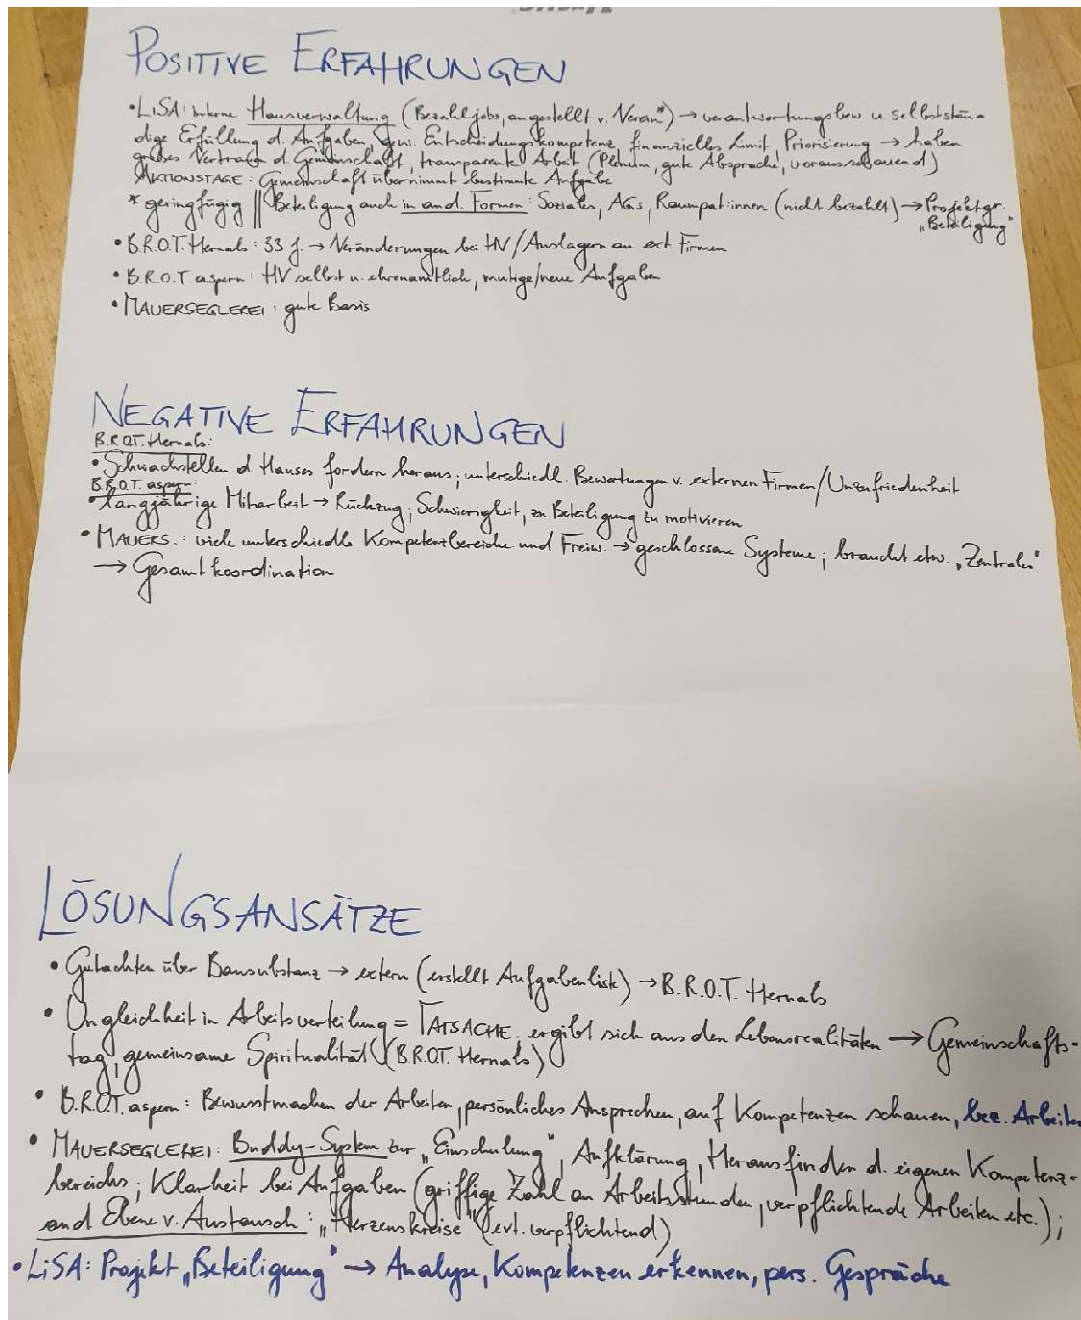 POSITIVE ERFAHRUNGEN
• LiSA: interne Hausverwaltung (Bezahljobs, angestellt v. Verein*) → verantwortungsbew. u. selbststän-
dige Erfüllung d. Aufgaben, gew. Entscheidungskompetenz, finanzielles Limit, Priorisierung → haben
großes Vertrauen d. Gemeinschaft, transparente Arbeit (Plenum, gute Absprache, vorausschauend)
AKTIONSTAGE: Gemeinschaft übernimmt bestimmte Aufgabe
* geringfügig || Beteiligung auch in and. Formen: Soziales, AGs, Raumpat:innen (nicht bezahlt) → Projektgr.
„Beteiligung"
• B.R.O.T. Hernals: 33 J. → Veränderungen bei HV/Auslagern an ext. Firmen
• B.R.O.T aspern: HV selbst u. ehrenamtlich, mutige/neue Aufgaben
• MAUERSEGLEREI: gute Basis
NEGATIVE ERFAHRUNGEN
B.R.O.T. Hernals:
• Schwachstellen d. Hauses fordern heraus; unterschiedl. Bewertungen v. externen Firmen/Unzufriedenheit
B.R.O.T. aspern:
• langjährige Mitarbeit → Rückzug; Schwierigkeit, zu Beteiligung zu motivieren
• MAUERS.: viele unterschiedle Kompetenzbereiche und Freiw. → geschlossene Systeme; braucht etw. „Zentrales"
→ Gesamtkoordination
LÖSUNGSANSÄTZE
• Gutachten über Bausubstanz → extern (erstellt Aufgabenliste) → B.R.O.T. Hernals
• Ungleichheit in Arbeitsverteilung = TATSACHE, ergibt sich aus den Lebensrealitäten → Gemeinschafts-
tag, gemeinsame Spiritualität (B.R.O.T. Hernals)
• B.R.O.T. aspern: Bewusstmachen der Arbeiten, persönliches Ansprechen, auf Kompetenzen schauen, bez. Arbeiten
• MAUERSEGLEREI: Buddy-System zur „Einschulung", Aufklärung, Herausfinden d. eigenen Kompetenz-
bereichs; Klarheit bei Aufgaben (griffige Zahl an Arbeitsstunden, verpflichtende Arbeiten etc.);
and. Ebene v. Austausch: „Herzenskreise" (evt. verpflichtend)
• LiSA: Projekt „Beteiligung" → Analyse, Kompetenzen erkennen, pers. Gespräche